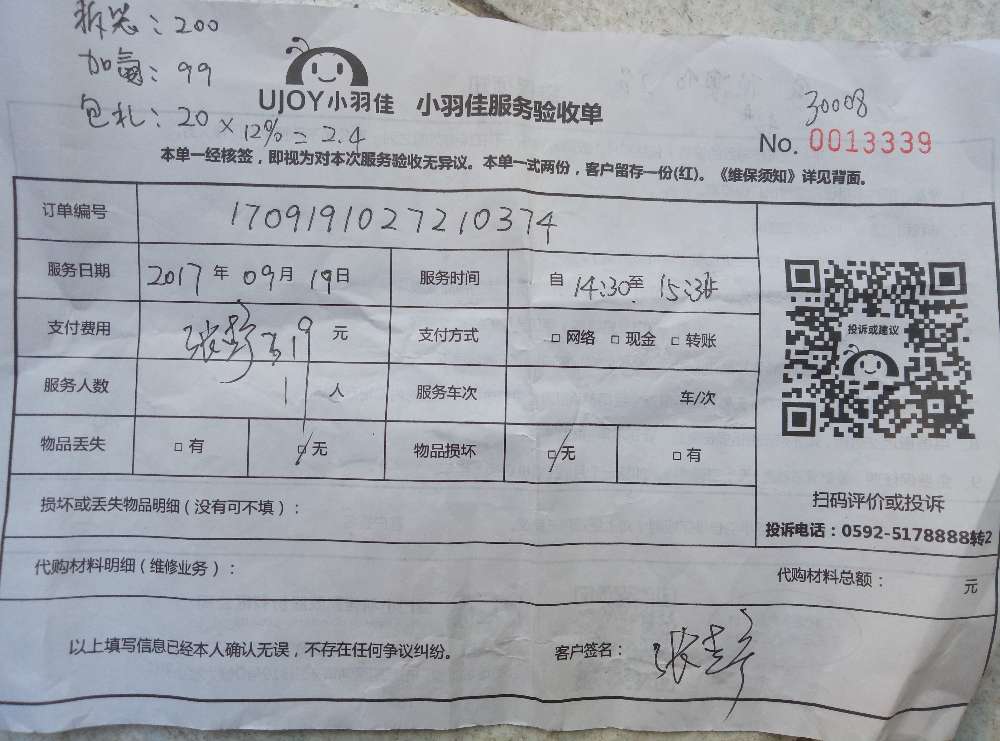 拆装：200
加氟：99
包扎：20 × 12% = 2.4
UJOY小羽佳 小羽佳服务验收单
30008
No. 0013339
本单一经核签，即视为对本次服务验收无异议。本单一式两份，客户留存一份(红)。《维保须知》详见背面。
订单编号 1709191027210374
服务日期 2017 年 09 月 19 日 服务时间 自 14:30 至 15:3
支付费用 319 元 支付方式 □ 网络 □ 现金 □ 转账
服务人数 1 人 服务车次 车/次
物品丢失 □ 有 □ 无 物品损坏 □ 无 □ 有
投诉或建议
扫码评价或投诉
投诉电话：0592-5178888转2
损坏或丢失物品明细（没有可不填）：
代购材料明细（维修业务）： 代购材料总额： 元
以上填写信息已经本人确认无误，不存在任何争议纠纷。 客户签名：